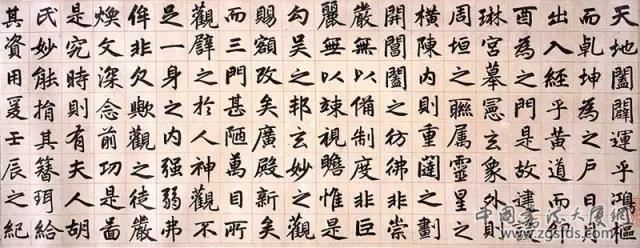 天地闔闢運乎鴻樞
而乾坤為之戶日
出入經乎黃道而
酉為之門是故建
琳宮摹憲玄象外則
周垣之聯属靈星之
橫陳內則重闥之劃
開閶闔之彷彿非崇
嚴無以備制度非巨
麗無以竦視瞻惟是
勾吳之邦玄妙之觀
賜額改矣廣殿新矣
而三門甚陋萬目所
觀譬之於人神觀不
足一身之內强弱弗
侔非欠歟觀之徒嚴
煥文深念前功是啚
是究時則有夫人胡
氏妙能捐其簪珥給
其資用爰壬辰之紀
www.zgsfds.com